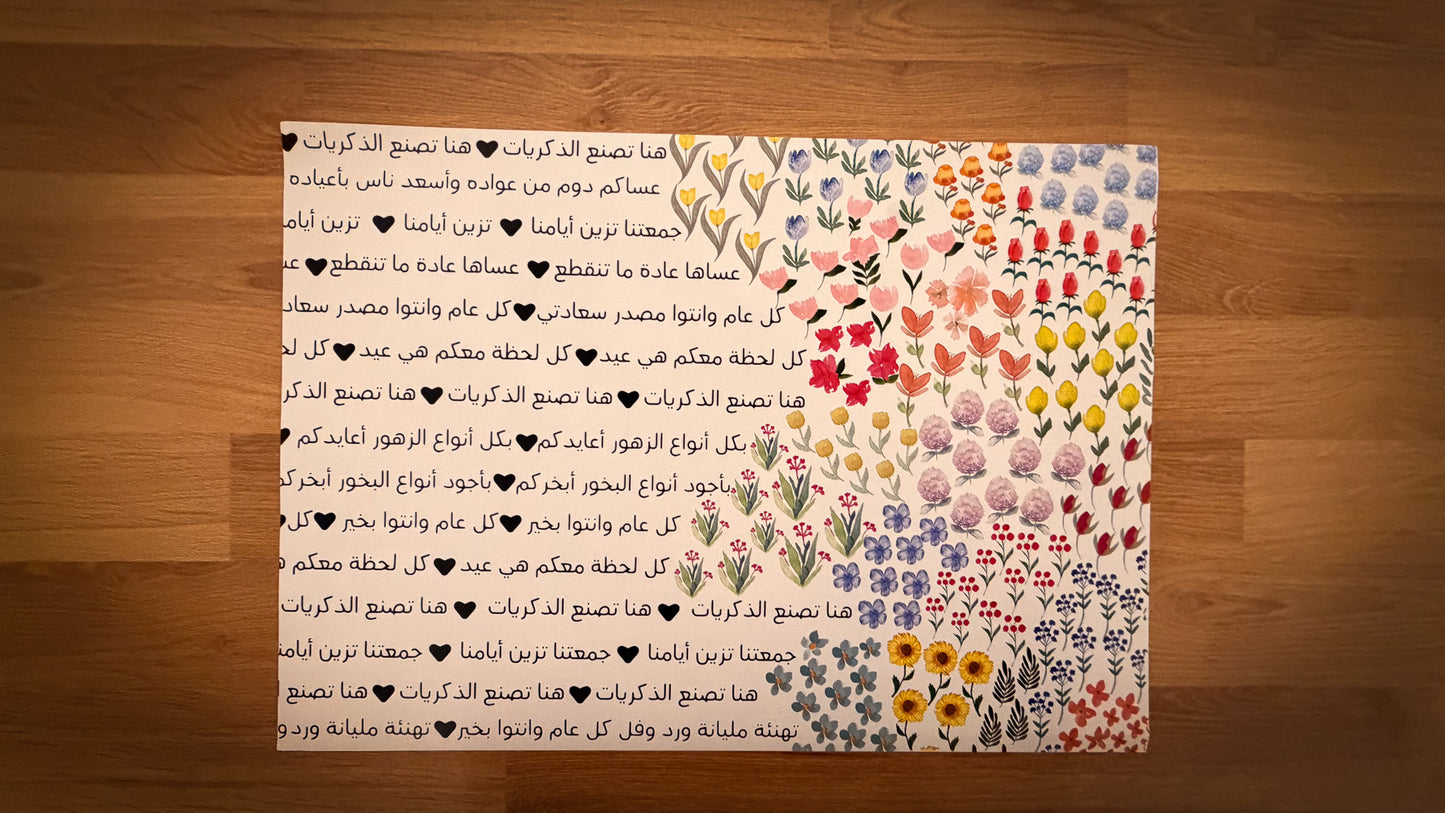 هنا تصنع الذكريات🖤هنا تصنع الذكريات🖤
عساكم دوم من عواده وأسعد ناس بأعياده
جمعتنا تزين أيامنا 🖤 تزين أيامنا 🖤 تزين أيام
عساها عادة ما تنقطع🖤 عساها عادة ما تنقطع🖤
كل عام وانتوا مصدر سعادتي🖤كل عام وانتوا مصدر سعاد
كل لحظة معكم هي عيد🖤كل لحظة معكم هي عيد🖤كل
هنا تصنع الذكريات🖤هنا تصنع الذكريات🖤هنا تصنع الذكر
بكل أنواع الزهور أعايدكم🖤بكل أنواع الزهور أعايدكم🖤
بأجود أنواع البخور أبخركم🖤بأجود أنواع البخور أبخرك
كل عام وانتوا بخير 🖤كل عام وانتوا بخير 🖤كل🖤
كل لحظة معكم هي عيد 🖤كل لحظة معكم
هنا تصنع الذكريات 🖤 هنا تصنع الذكريات 🖤 هنا تصنع الذكريات
جمعتنا تزين أيامنا 🖤 جمعتنا تزين أيامنا 🖤 جمعتنا تزين أيامن
هنا تصنع الذكريات🖤هنا تصنع الذكريات🖤هنا تصنع
تهنئة مليانة ورد وفل كل عام وانتوا بخير🖤تهنئة مليانة ورد و